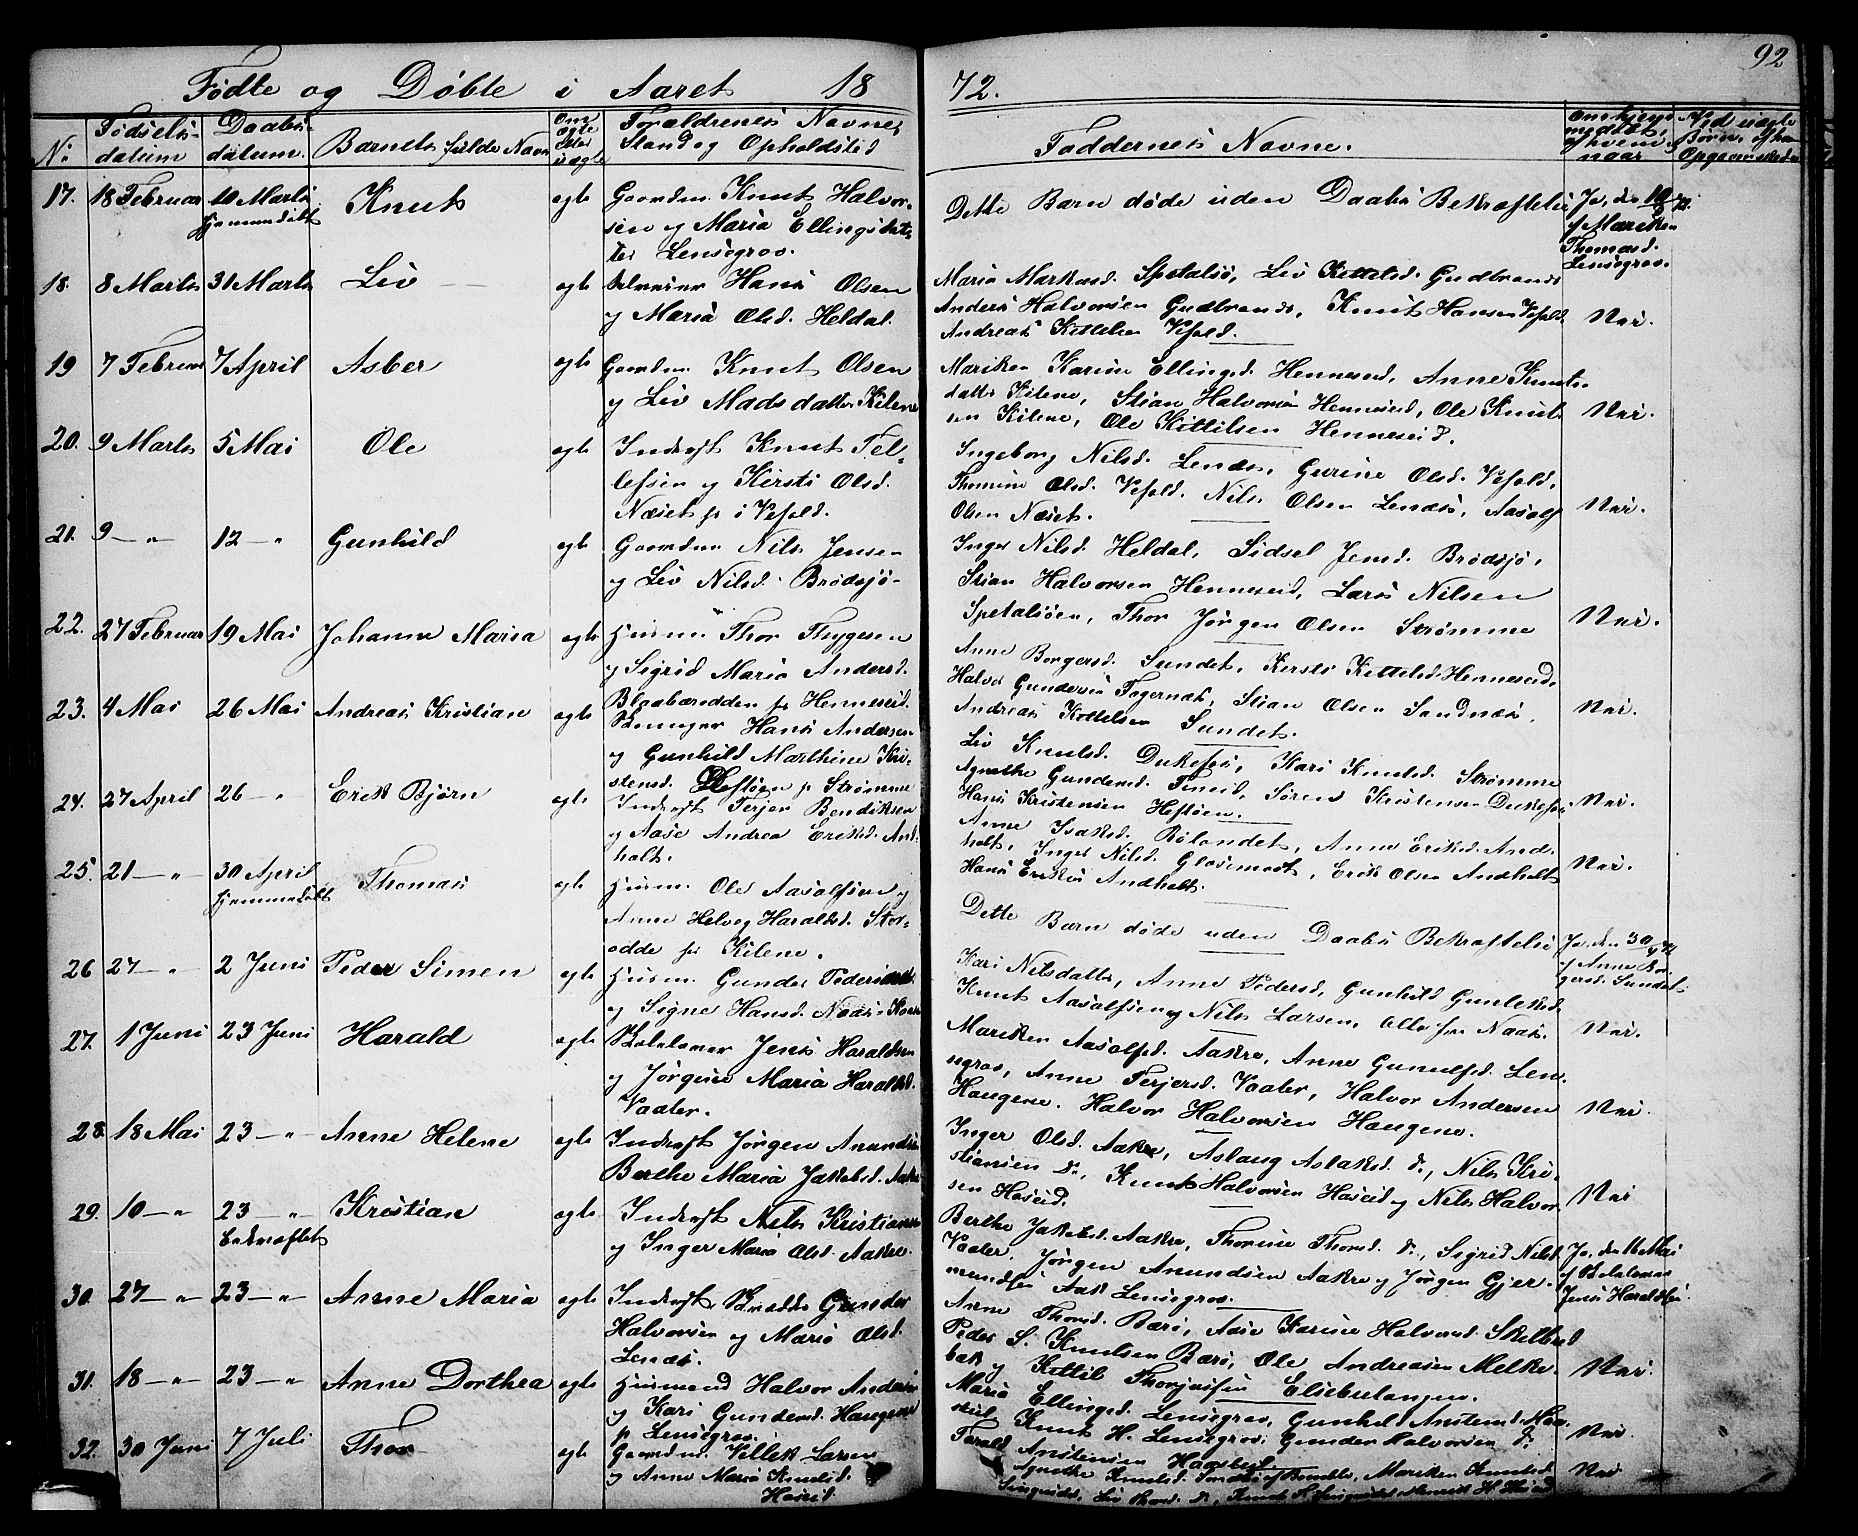 92
Fødte og Døbte i Aaret 1872.
No Fødselsdatum Daabsdatum Barnets fulde Navn Om ægte eller uægte Forældrenes Navne, Stand og Opholdsted
Faddernes Navne.
Om hjemmedøbt, af hvem, naar
Ved uægte Børn
17. 18 Februar 10 Marts Knut ægte Gaardm. Knut Halvor-
hjemmedøbt sen og Maria Ellingsdat-
ter Lensegrav.
Dette Barn døde uden Daabs Bekræftelse Ja, d.
af Mariken
Thomasd.
Lensegrav.
18. 8 Marts 31 Marts Liv ægte Hans Olsen
og Maria Olsd. Heldal.
Maria Markusd. Spetalsø, Liv Kittelsd. Gudbrands
Anders Halvorsen Gudbrands, Knut Hansen Vefald. Nei.
Andreas Kittelsen Vefald.
19 7 Februar 7 April Asber ægte Gaardm. Knut Olsen
og Liv Madsdatter Kilene
Mariken Karine Ellingsd. Henneseid, Anne Knuts-
datter Kilene, Stian Halvorsen Henneseid, Ole Knut- Nei.
sen Kilene, Ole Kittilsen Henneseid.
20. 9 Marts 5 Mai Ole ægte Inderst Knut Tel-
lefsen og Kirsti Olsd.
Næset p. i Vefald.
Ingeborg Nilsd. Lenæs, Gurine Olsd. Vefald,
Thomine Olsd. Vefald. Nils Olsen Lenæs, Aasolf
Olsen Næset. Nei.
21. 9 — " 12 — " Gunhild ægte Gaardm. Nils Jensen
og Liv Nilsd. Brødsjø
Inger Nilsd. Heldal, Sidsel Jensd. Brødsjø,
Stian Halvorsen Henneseid, Lars Nilsen
Spetalsøen, Thor Jørgen Olsen Strømme Nei.
22. 27 Februar 19 Mai Johanne Maria ægte Husm. Thor Thygesen
og Sigrid Maria Andersd.
Blaabærodden p. Henneseid.
Anne Borgersd. Sundet, Kirsti Kittelsd. Henneseid,
Halvor Gundersen Fagernæs, Stian Olsen Sandnæs, Nei.
Andreas Kittelsen Sundet.
23. 4 Mai 26 Mai Andreas Kristian ægte Hans Andersen
og Gunhild Marthine Kri-
stensd. Heftøen p. Strømme
Liv Knutsd. Dukefos, Kari Knutsd. Strømme
Agnethe Gundersd. Søren Kristensen Dukefos Nei.
Hans Kristensen Heftøen.
24. 27 April 26 — " Erik Bjørn ægte Inderst Terjer Bendiksen
og Aase Andrea Eriksd. And-
holt.
Anne Isaksd. Rølandet, Anne Eriksd. And-
holt, Inger Nilsd. Glasemoot, Erik Olsen Andholt Nei.
Hans Eriksen Andholt.
25. 21 — " 30 April Thomas ægte Husm. Ole Aasolfsen og
hjemmedøbt Anne Helvig Haraldsd. Stor-
odde p. Kilene.
Dette Barn døde uden Daabs Bekræftelse Ja, den 30
af Anne Bor-
gersd. Sundet.
26 27 — " 2 Juni Peder Simen ægte Husm. Gunder Pedersen
og Signe Hansd. Naas
Kari Nilsdatter, Anne Pedersd, Gunhild Gunleksd.
Knut Aasolfsen og Nils Larsen, Alle fra Naas. Nei.
27. 1 Juni 23 Juni Harald ægte Skolelærer Jens Haraldsen
og Jørgine Maria Haraldsd.
Vaaler.
Mariken Aasolfsd. Aakre, Anne Gunulfsd. Len-
segrav, Anne Terjersd. Vaaler, Halvor Andersen
Haugene. Halvor Halvorsen Haugene. Nei.
28. 18 Mai 23 — " Anne Helene ægte Inderst Jørgen Anundsen
Berthe Maria Jakobsd. Aakre
Inger Olsd. Aakre, Aslaug Aslaksd. d., Nils Kri-
stiansen d., Knut Halvorsen Haseid og Nils Halvor-
sen Haseid. Nei
29. 10 — " 23 — " Kristian ægte Inderst Nils Kristiansen
Bekræftet og Inger Maria Olsd. Aakre.
Berthe Jakobsd. Aakre, Thorine Thorsd. d., Sigrid Nilsd.
Vaaler. Jørgen Anundsen Aakre og Jørgen Gjer-
mundsen Aas Lensegrav.
Ja, den 16 Mai
af Skolelærer
Jens Haraldsen.
30. 27 — " 23 — " Anne Maria ægte Inderst, Gunder
Halvorsen og Maria Olsd.
Lenæs.
Anne Thorsd. Barø, Aase Karine Halvorsd.
Peder S. Knutsen Barø, Ole Andreasen Melke-
bak og Kittil Thorjusen Elsebutangen. Nei.
31. 18 — " 23 — " Anne Dorthea ægte Husmand Halvor Andersen
og Kari Gundersd. Haugene
p. Lensegrav.
Maria Ellingsd. Lensegrav, Gunhild Anstensd. Haa-
Knut H. Lensegrav, Gunder Halvorsen d.
Anstensen Nei.
32. 30 Juni 7 Juli Thor ægte Gaardm. Vellek Larsen
og Anne Maria Knutsd.
Haseid.
Agnethe Knutsd. Mariken Knutsd. Nei